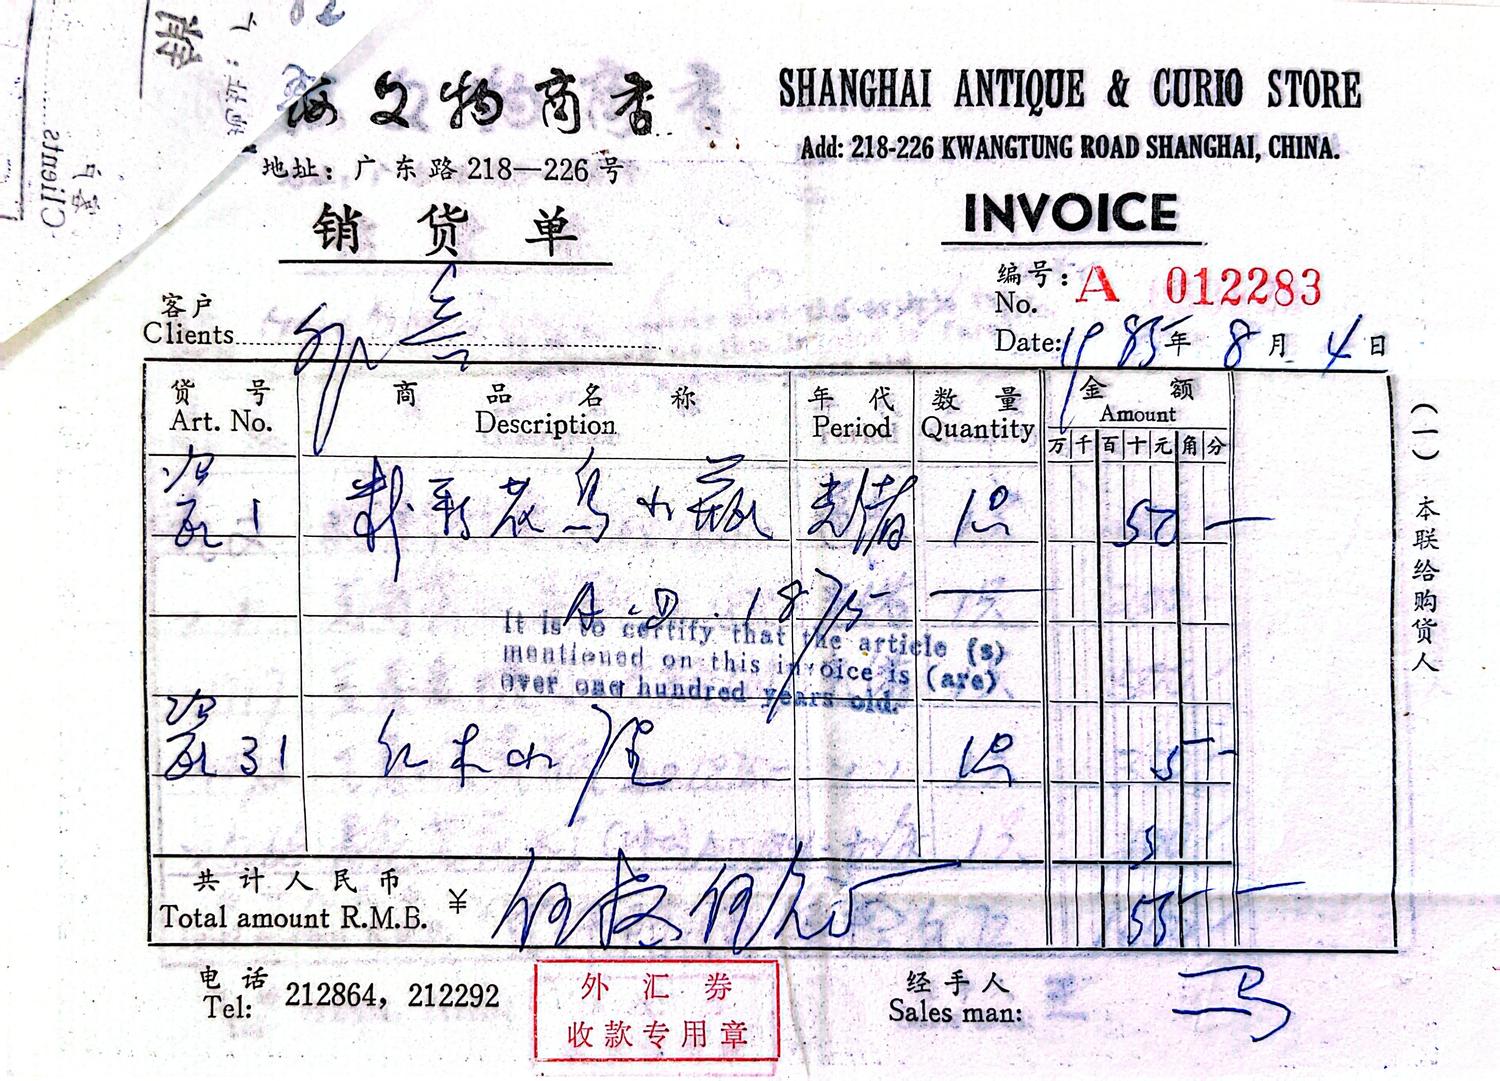 海文物商店
SHANGHAI ANTIQUE & CURIO STORE
地址：广东路218—226号
Add: 218-226 KWANGTUNG ROAD SHANGHAI, CHINA.
销货单
INVOICE
编号：
No. A 012283
客户
Clients 外宾
Date: 1985年 8月 4日
货号 商品名称 年代 数量 金额
Art. No. Description Period Quantity Amount
万 千 百 十 元 角 分
瓷 1 粉彩花鸟小瓶 光绪 1只 50 —
A.D. 1875
It is to certify that the article (s)
mentioned on this invoice is (are)
over one hundred years old.
瓷 31 红木小座 1只 5 —
5
共计人民币
Total amount R.M.B. ¥ 伍拾伍元 55 —
电话
Tel: 212864, 212292
外汇券
收款专用章
经手人
Sales man: 马
（一）本联给购货人
Clients
客户
地址：